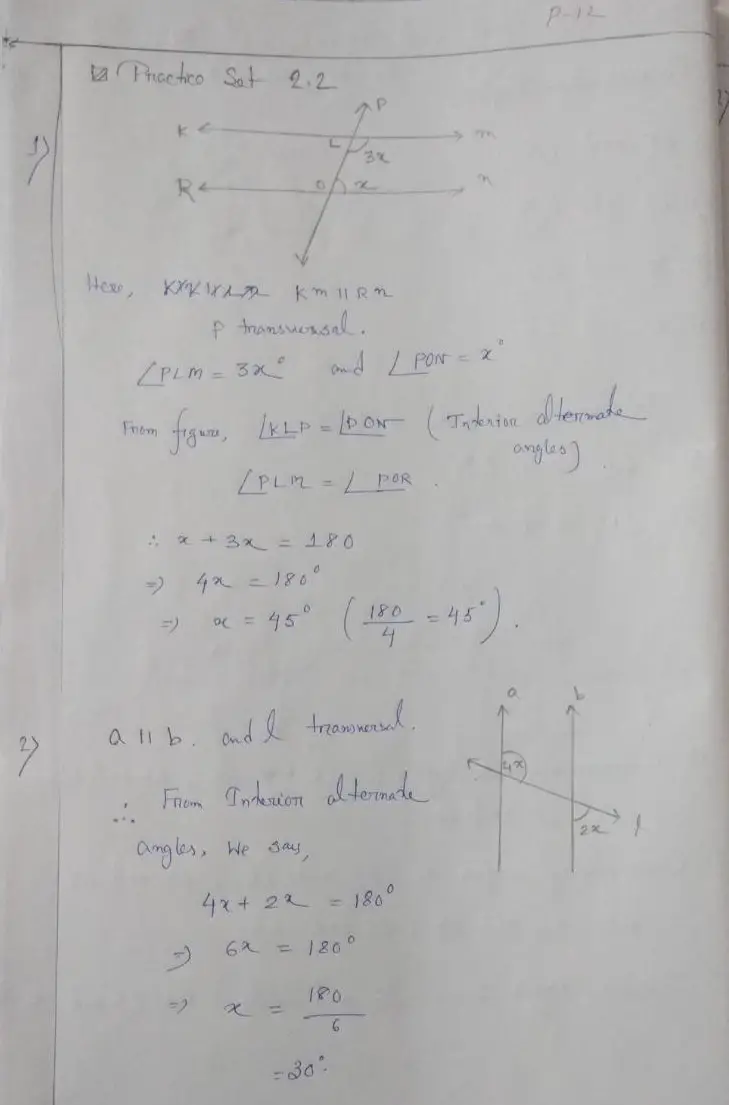 P-12
Practice Set 2.2
1)
P
K
m
L
3x
R
O
x
n
Here,
Km || Rn
P transversal.
∠PLM = 3x° and ∠PON = x°
From figure, ∠KLP = ∠PON (Interior alternate
angles)
∠PLM = ∠POR .
∴ x + 3x = 180
⇒ 4x = 180°
⇒ x = 45° (180/4 = 45°).
2)
a || b. and l transversal.
a
b
4x
2x
l
∴ From Interior alternate
angles, we say,
4x + 2x = 180°
⇒ 6x = 180°
⇒ x = 180/6
= 30°.